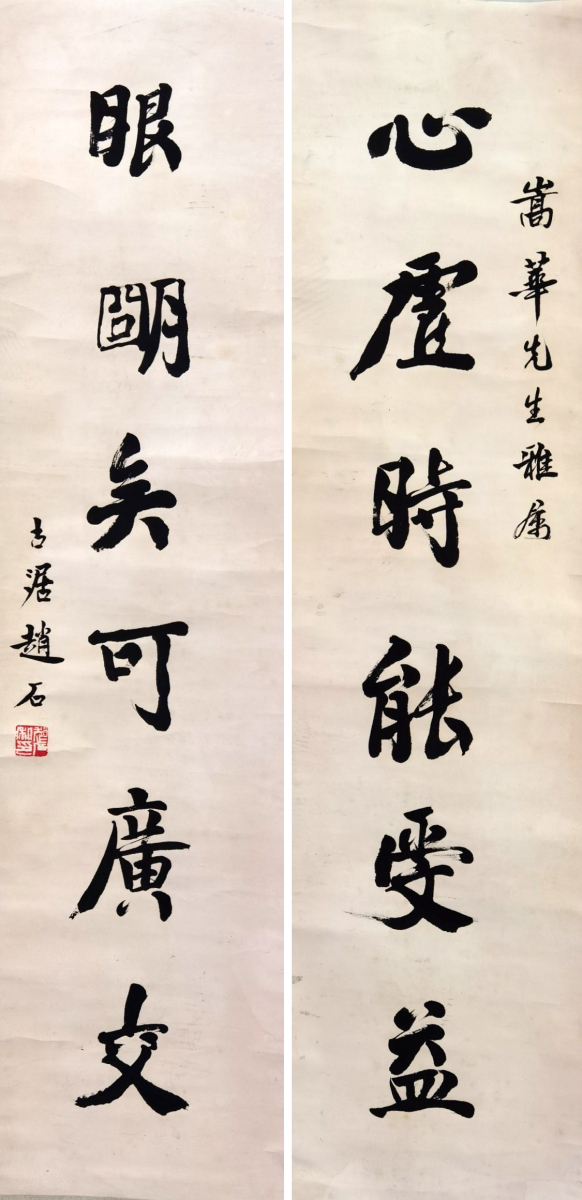 嵩華先生雅属
心虛時能受益
眼朙矣可廣交
古泥趙石